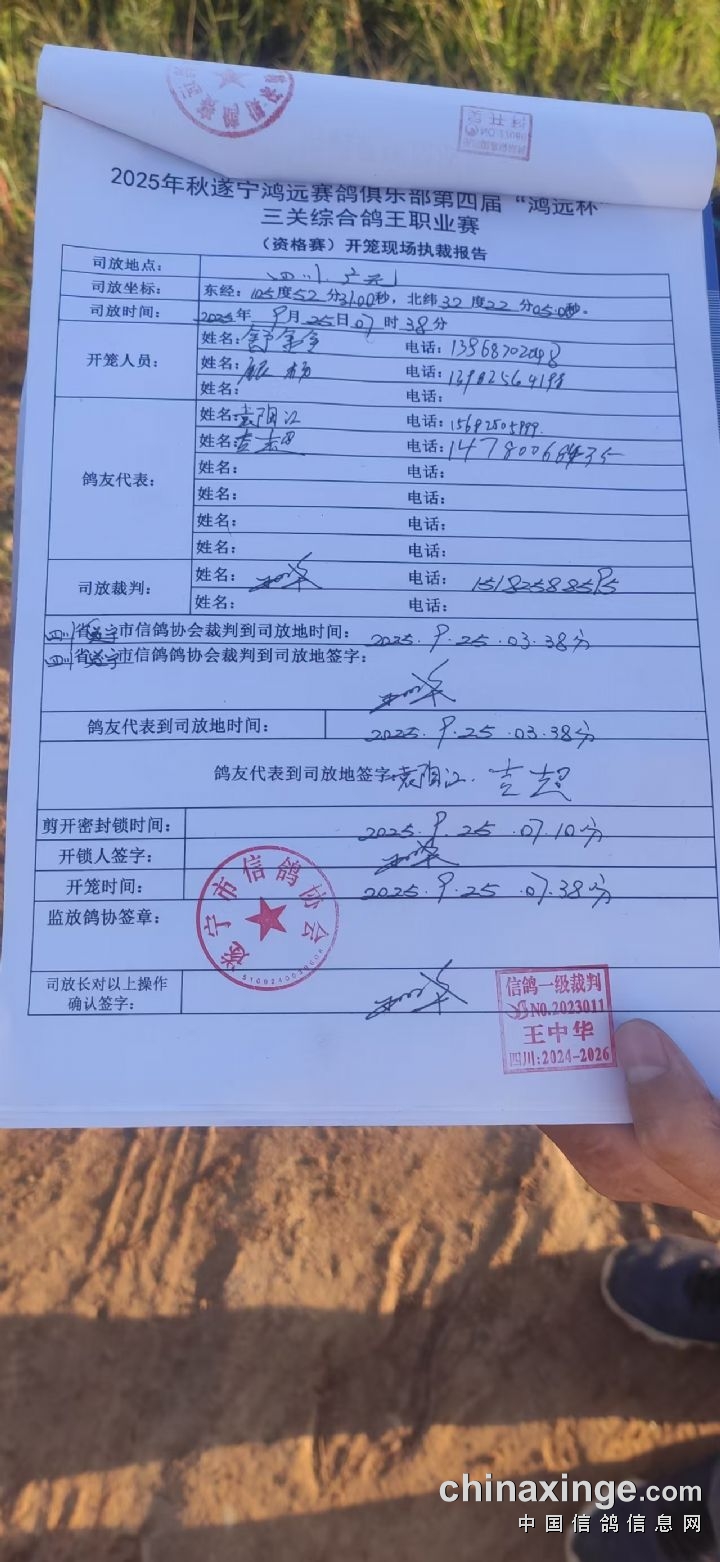 2025年秋遂宁鸿远赛鸽俱乐部第四届“鸿远杯”
三关综合鸽王职业赛
（资格赛）开笼现场执裁报告
司放地点： 四川 广元
司放坐标： 东经：105度52分31.00秒，北纬32度22分05.0秒。
司放时间： 2025年9月25日07时38分
开笼人员：
姓名： 电话：13968702048
姓名： 电话：
姓名： 电话：
鸽友代表：
姓名：袁阳江 电话：
姓名：吉志超 电话：
姓名： 电话：
姓名： 电话：
姓名： 电话：
姓名： 电话：
司放裁判：
姓名： 电话：
姓名： 电话：
四川省遂宁市信鸽协会裁判到司放地时间： 2025.9.25.03.38分
四川省遂宁市信鸽鸽协会裁判到司放地签字：
鸽友代表到司放地时间： 2025.9.25.03.38分
鸽友代表到司放地签字：袁阳江. 吉超
剪开密封锁时间： 2025.9.25.07.10分
开锁人签字：
开笼时间： 2025.9.25.07.38分
监放鸽协签章：
遂宁市信鸽协会
司放长对以上操作
确认签字：
信鸽一级裁判
NO.2023011
王中华
四川:2024-2026
chinaxinge.com
中国信鸽信息网